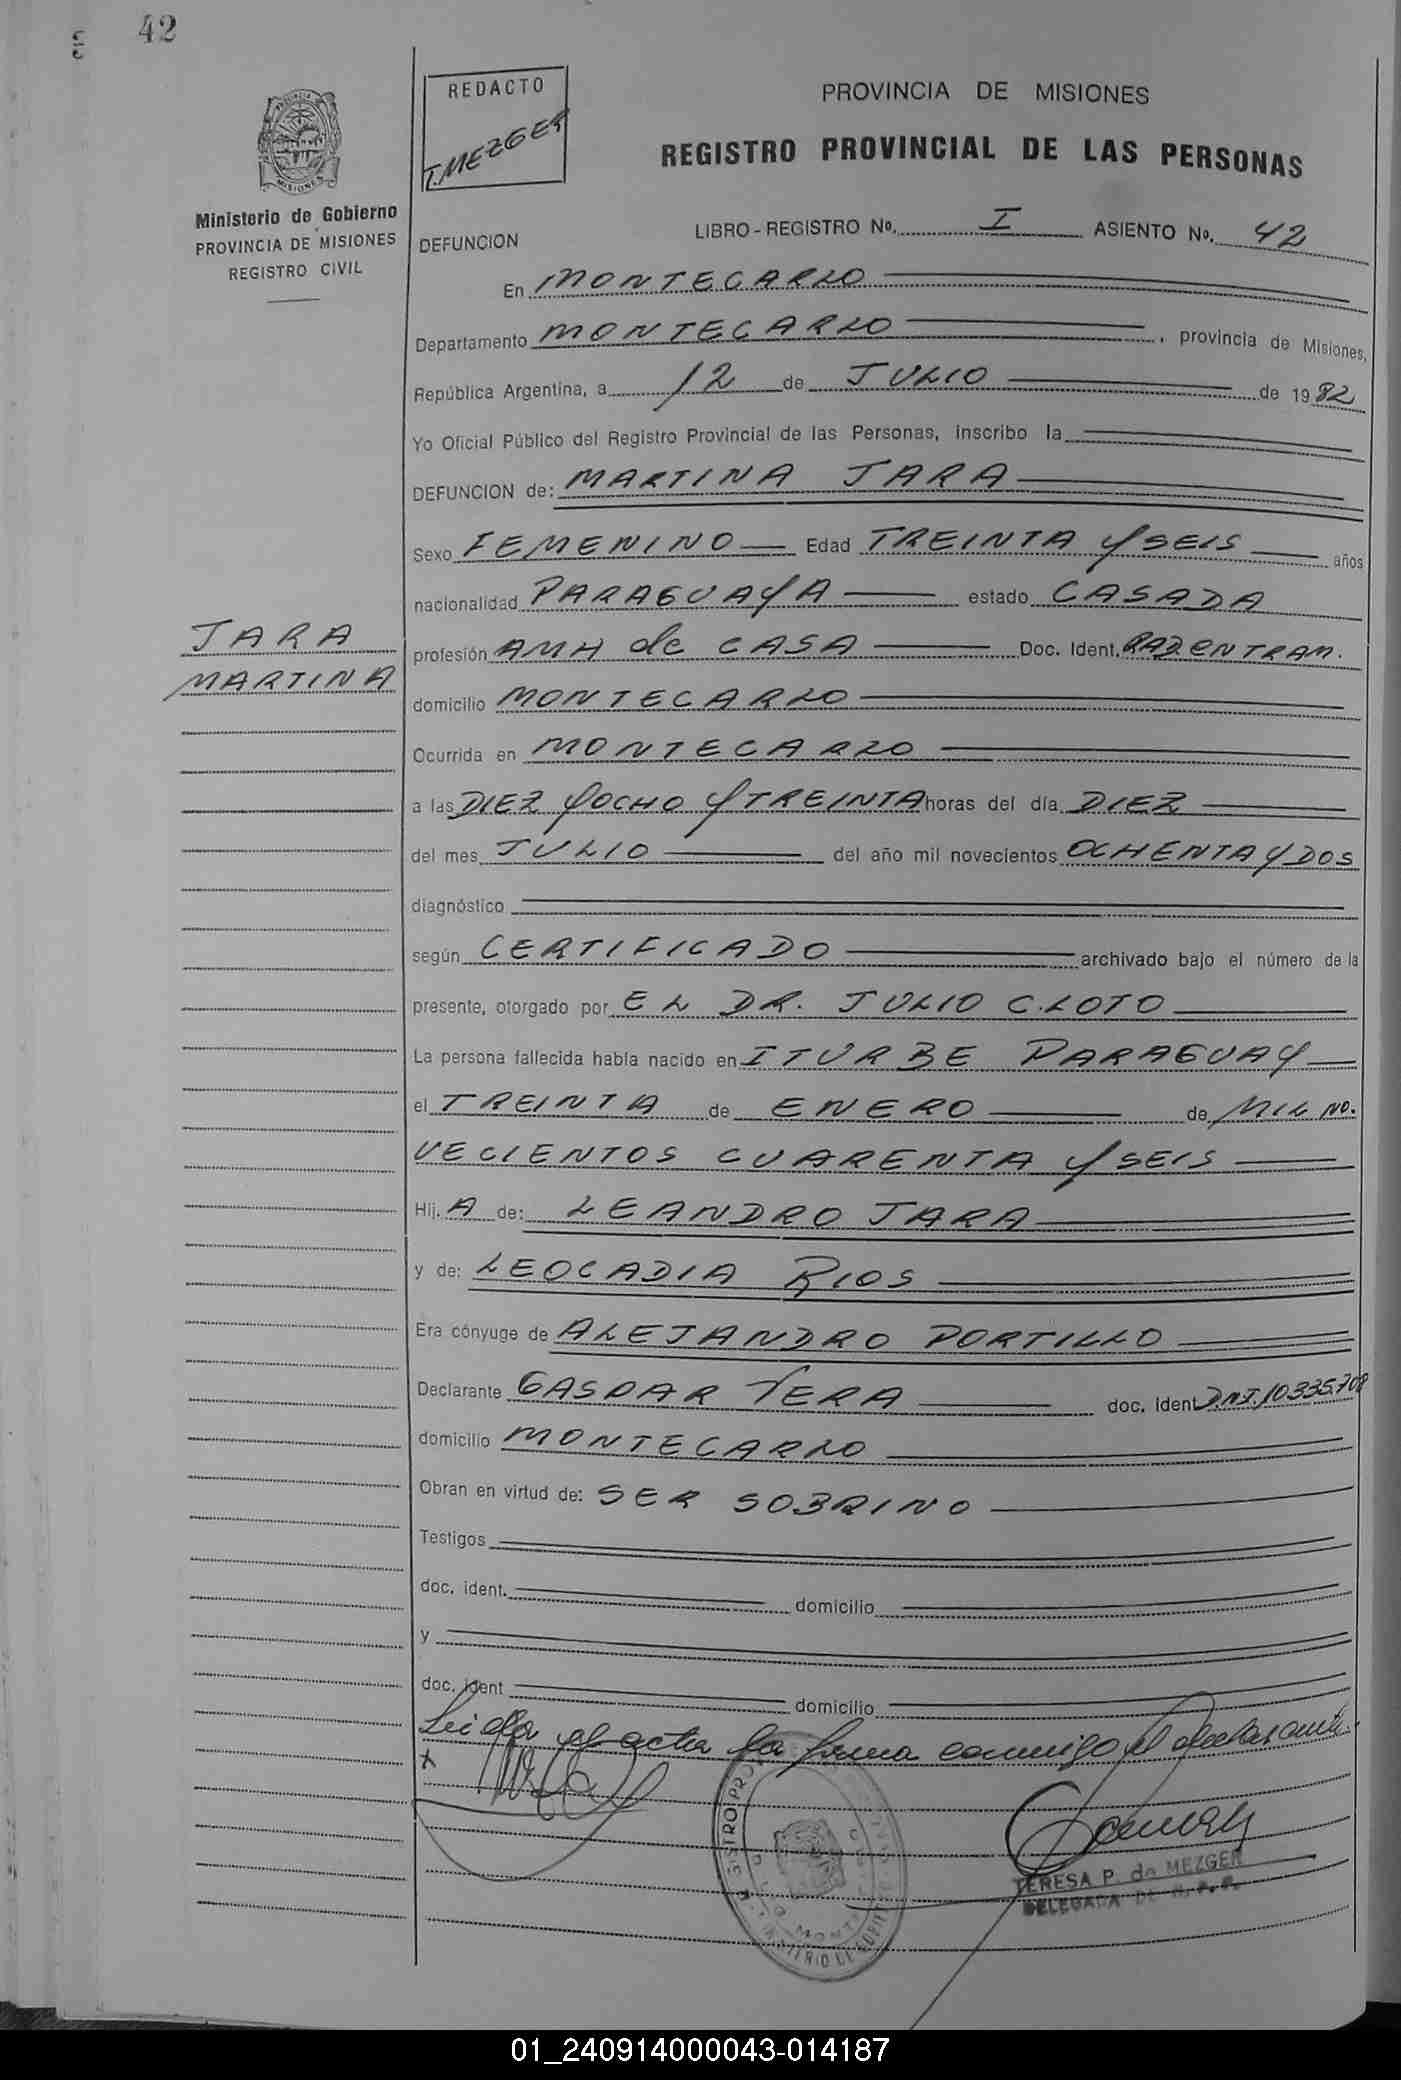 42
REDACTO
T. MEZGER
PROVINCIA DE MISIONES
REGISTRO PROVINCIAL DE LAS PERSONAS
PROVINCIA
MISIONES
Ministerio de Gobierno
PROVINCIA DE MISIONES
REGISTRO CIVIL
DEFUNCION
LIBRO - REGISTRO No. I ASIENTO No. 42
En MONTECARLO
Departamento MONTECARLO, provincia de Misiones,
República Argentina, a 12 de JULIO de 1982
Yo Oficial Público del Registro Provincial de las Personas, inscribo la
DEFUNCION de: MARTINA JARA
Sexo FEMENINO Edad TREINTA Y SEIS años
nacionalidad PARAGUAYA estado CASADA
JARA
MARTINA
profesión AMA de CASA Doc. Ident. RAD. EN TRAM.
domicilio MONTECARLO
Ocurrida en MONTECARLO
a las DIEZ Y OCHO Y TREINTA horas del día DIEZ
del mes JULIO del año mil novecientos OCHENTA Y DOS
diagnóstico
según CERTIFICADO archivado bajo el número de la
presente, otorgado por EL DR. JULIO C. LOTO
La persona fallecida había nacido en ITURBE PARAGUAY
el TREINTA de ENERO de MIL NO.
VECIENTOS CUARENTA Y SEIS
Hij. A de: LEANDRO JARA
y de: LEOCADIA RIOS
Era cónyuge de ALEJANDRO PORTILLO
Declarante GASPAR VERA doc. Ident D.N.I. 10.335.708
domicilio MONTECARLO
Obran en virtud de: SER SOBRINO
Testigos
doc. ident. domicilio
y
doc. ident domicilio
Leida el acta la firma conmigo el declarante.
x
TERESA P. de MEZGER
DELEGADA DE R. P. P.
01_240914000043-014187